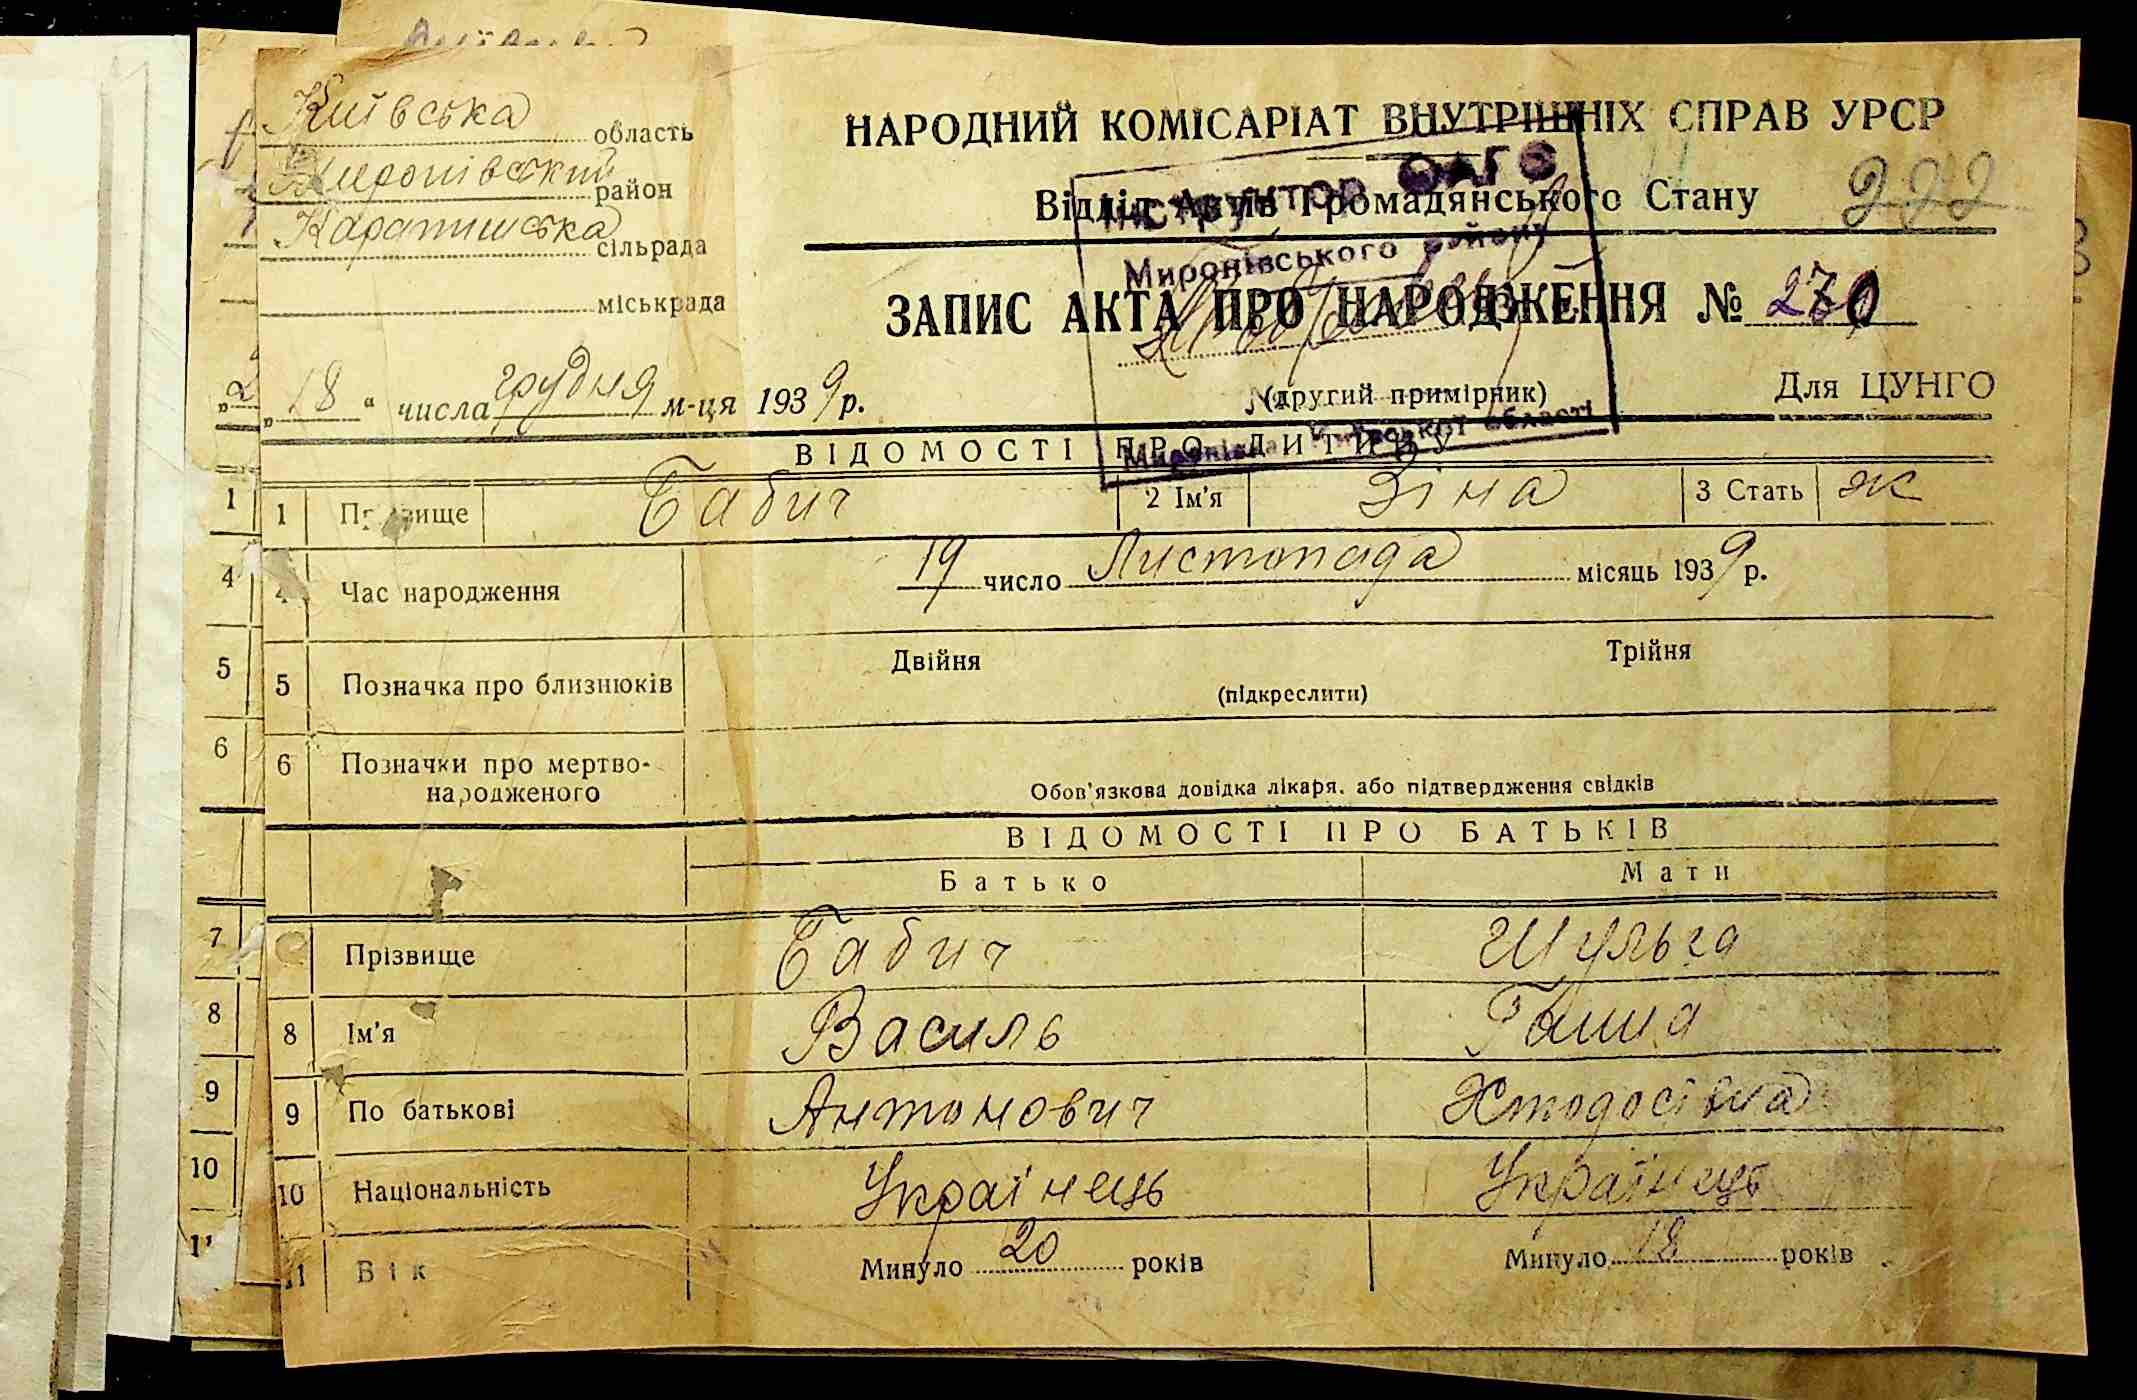 Київська область
Миронівський район
Карапишська сільрада
міськрада
НАРОДНИЙ КОМІСАРІАТ ВНУТРІШНІХ СПРАВ УРСР
Відділ Актів Громадянського Стану 222
ЗАПИС АКТА ПРО НАРОДЖЕННЯ №
(другий примірник)
Для ЦУНГО
Інструктор ОАГС
Миронівського району
Київської області
„18“ числа грудня м-ця 1939 р.
ВІДОМОСТІ ПРО ДИТИНУ
1 Прізвище Бабич 2 Ім'я Зіна 3 Стать ж
4 Час народження 19 число Листопада місяць 1939 р.
5 Позначка про близнюків Двійня Трійня
(підкреслити)
6 Позначки про мертво-
народженого Обов'язкова довідка лікаря, або підтвердження свідків
ВІДОМОСТІ ПРО БАТЬКІВ
Батько Мати
Прізвище Бабич Шульга
8 Ім'я Василь Ганна
9 По батькові Антонович
10 Національність Українець Українець
11 Вік Минуло 20 років Минуло 18 років
1
4
5
6
7
8
9
10